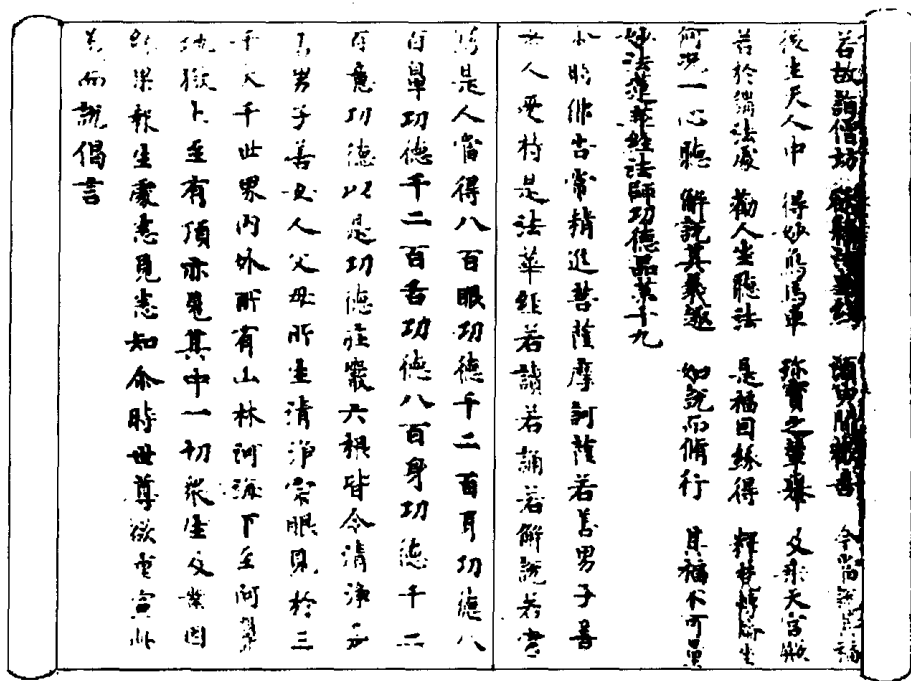 若故詣僧坊 欲聽法華經 須臾聞歡喜 今當說其福
後生天人中 得妙鳥馬車 珍寶之輦輿 及乘天宮殿
若於講法處 勸人坐聽法 是福因緣得 釋梵轉輪坐
何況一心聽 解說其義趣 如說而脩行 其福不可量
妙法蓮華經法師功德品第十九
尒時佛告常精進菩薩摩訶薩若善男子善
女人受持是法華經若讀若誦若解說若書
寫是人當得八百眼功德千二百耳功德八
百鼻功德千二百舌功德八百身功德千二
百意功德以是功德莊嚴六根皆令清淨是
善男子善女人父母所生清淨宍眼見於三
千大千世界內外所有山林河海下至阿鼻
地獄上至有頂亦見其中一切眾生及業因
緣果報生處悉見悉知尒時世尊欲重宣此
義而說偈言